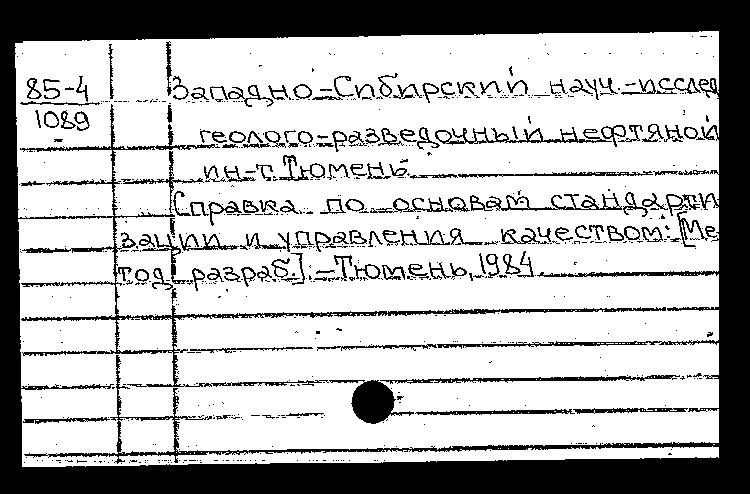 85-4
1089
Западно-Сибирский науч.-исслед
геолого-разведочный нефтяной
ин-т. Тюмень.
Справка по основам стандарти
зации и управления качеством: [Ме
тод. разраб.]. - Тюмень, 1984.